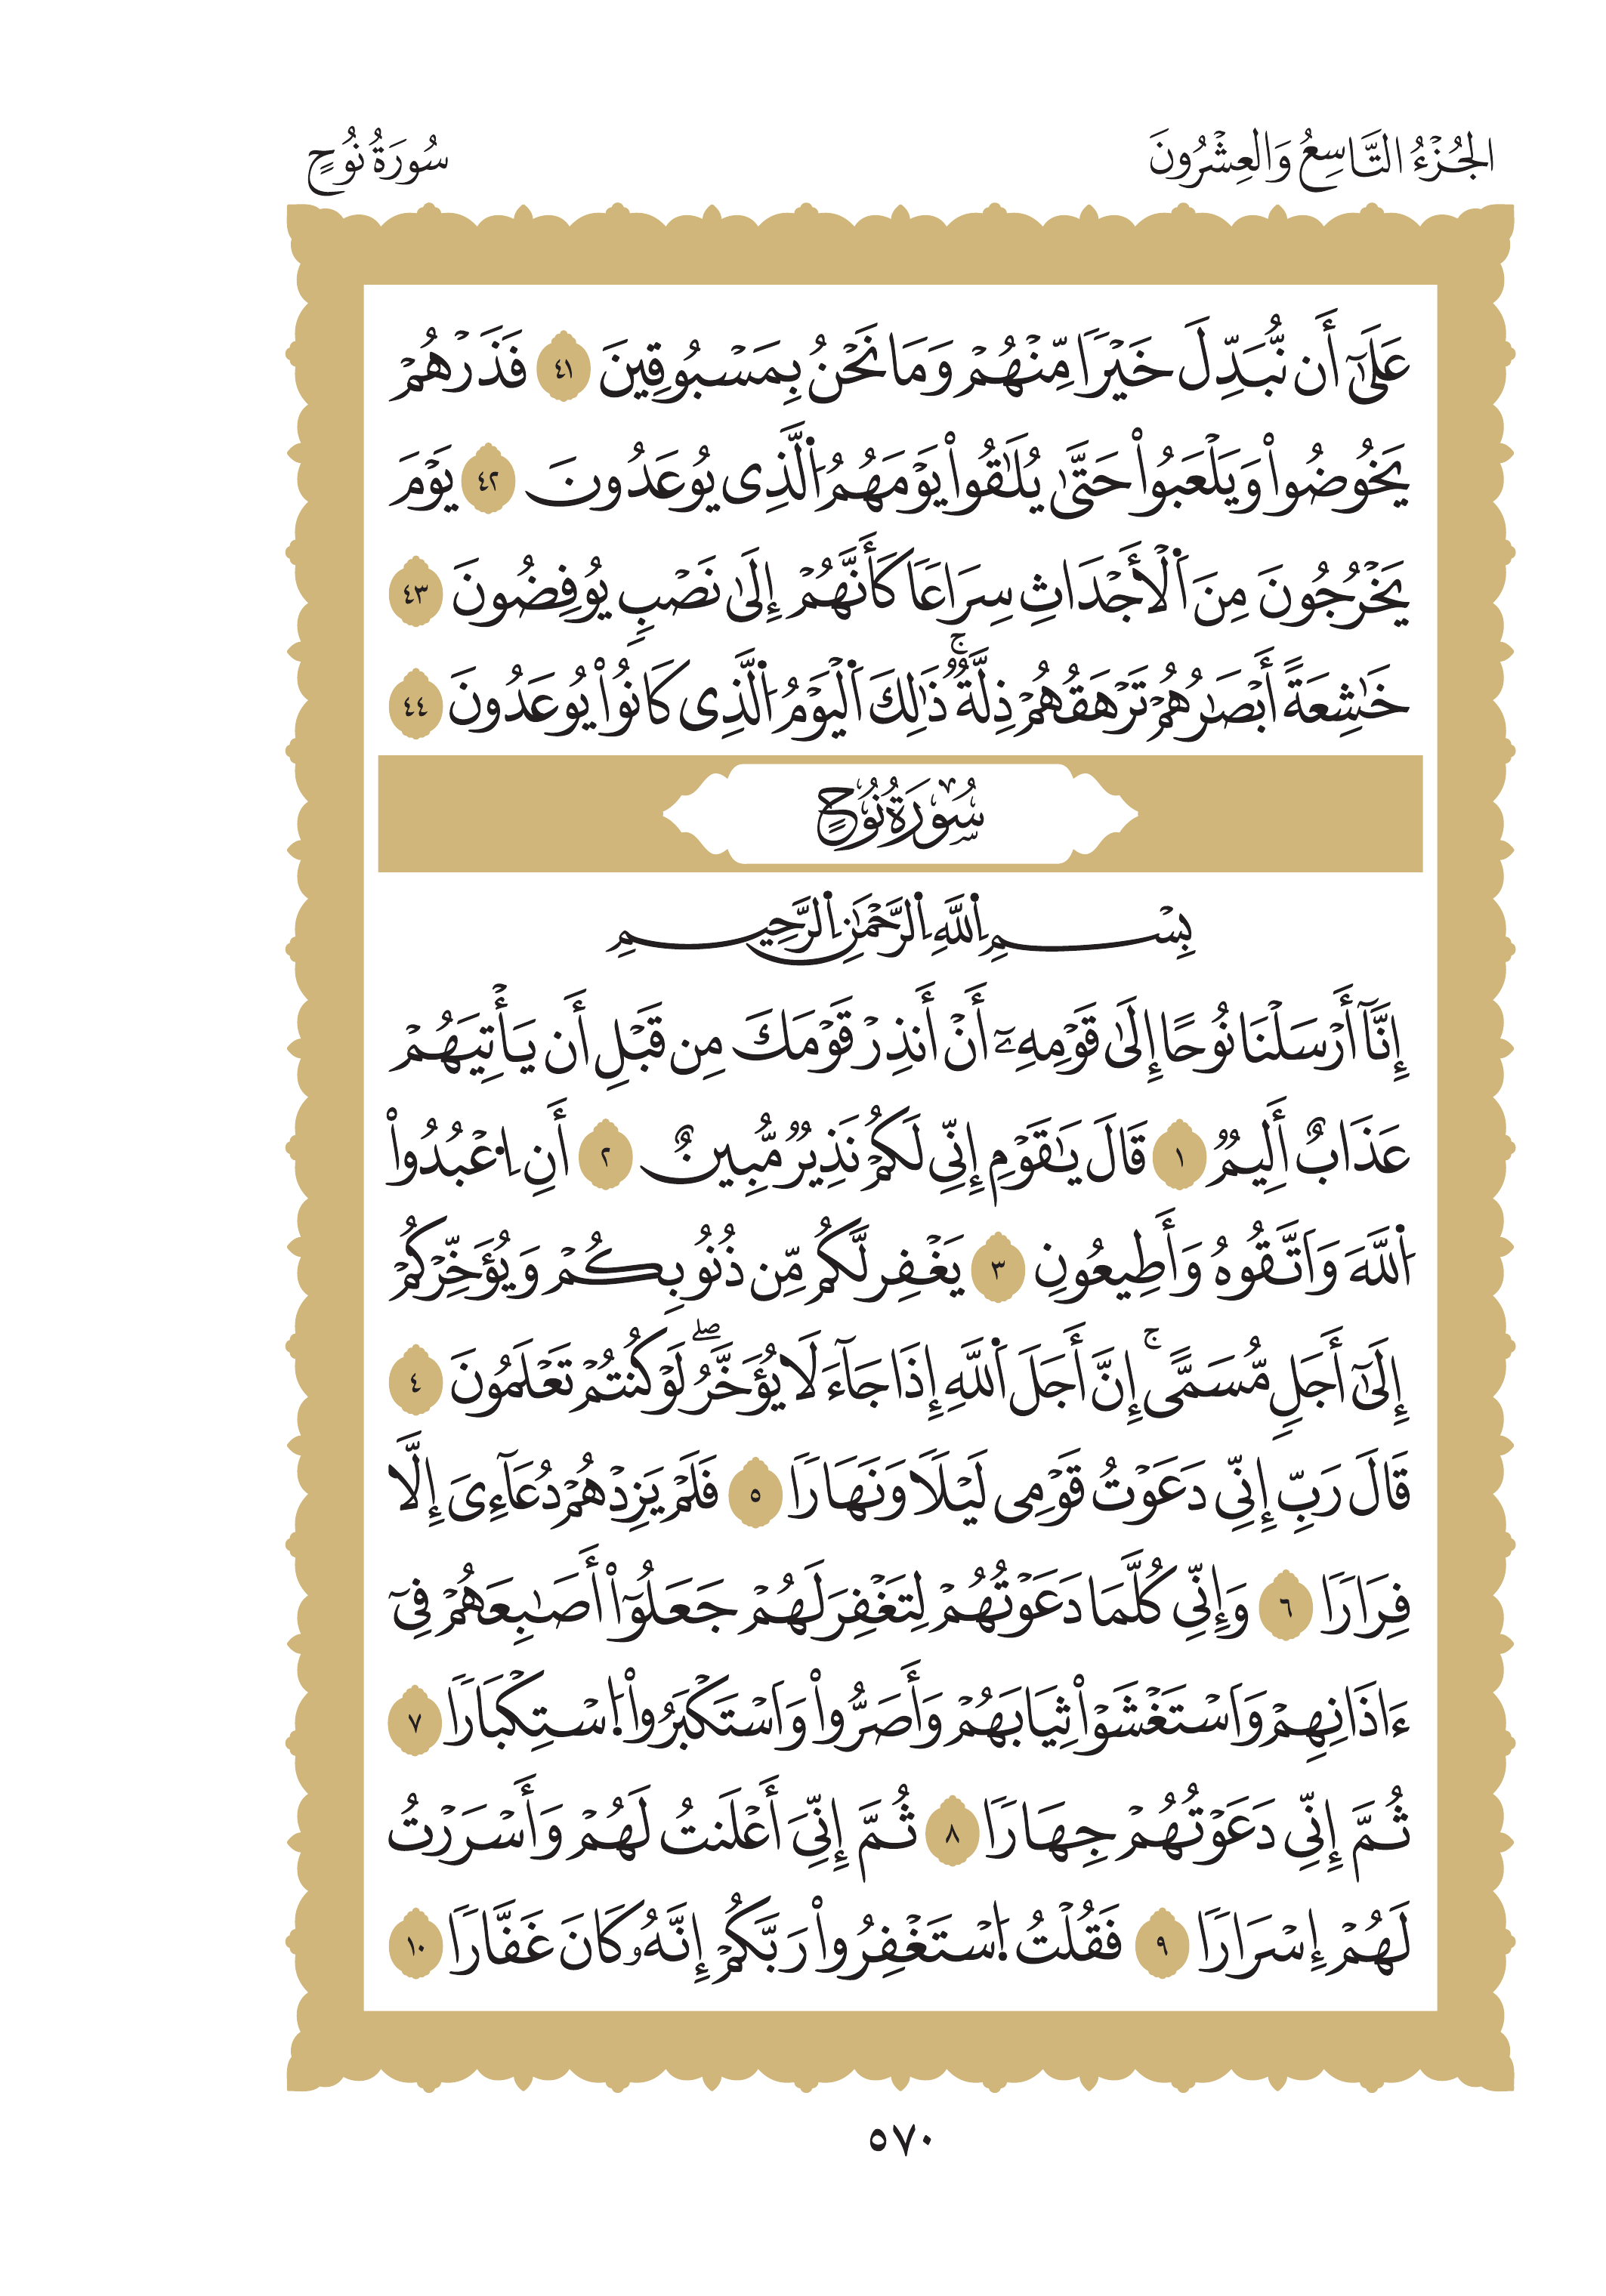 الجُزْءُ التَّاسِعُ وَالعِشْرُونَ
سُورَةُ نُوحٍ
عَلَىٰٓ أَن نُّبَدِّلَ خَيْرًا مِّنْهُمْ وَمَا نَحْنُ بِمَسْبُوقِينَ ٤١ فَذَرْهُمْ
يَخُوضُوا۟ وَيَلْعَبُوا۟ حَتَّىٰ يُلَٰقُوا۟ يَوْمَهُمُ اَ۬لَّذِى يُوعَدُونَ ٤٢ يَوْمَ
يَخْرُجُونَ مِنَ اَ۬لْأَجْدَاثِ سِرَاعًا كَأَنَّهُمْ إِلَىٰ نَصْبٍ يُوفِضُونَ ٤٣
خَٰشِعَةً أَبْصَٰرُهُمْ تَرْهَقُهُمْ ذِلَّةٌ ۚ ذَٰلِكَ اَ۬لْيَوْمُ اُ۬لَّذِى كَانُوا۟ يُوعَدُونَ ٤٤
سُورَةُ نُوحٍ
بِسْمِ اِ۬للَّهِ اِ۬لرَّحْمَٰنِ اِ۬لرَّحِيمِ
إِنَّآ أَرْسَلْنَا نُوحًا إِلَىٰ قَوْمِهِۦٓ أَنْ أَنذِرْ قَوْمَكَ مِن قَبْلِ أَن يَأْتِيَهُمْ
عَذَابٌ أَلِيمٌ ١ قَالَ يَٰقَوْمِ إِنِّى لَكُمْ نَذِيرٌ مُّبِينٌ ٢ أَنِ اِ۟عْبُدُوا۟
اُ۬للَّهَ وَاَتَّقُوهُ وَأَطِيعُونِ ٣ يَغْفِر لَّكُم مِّن ذُنُوبِكُمْ وَيُؤَخِّرْكُمْ
إِلَىٰٓ أَجَلٍ مُّسَمًّى ۚ إِنَّ أَجَلَ اَ۬للَّهِ إِذَا جَآءَ لَا يُؤَخَّرُ ۖ لَوْ كُنتُمْ تَعْلَمُونَ ٤
قَالَ رَبِّ إِنِّى دَعَوْتُ قَوْمِى لَيْلًا وَنَهَارًا ٥ فَلَمْ يَزِدْهُمْ دُعَآءِىَ إِلَّا
فِرَارًا ٦ وَإِنِّى كُلَّمَا دَعَوْتُهُمْ لِتَغْفِرَ لَهُمْ جَعَلُوٓا۟ أَصَٰبِعَهُمْ فِىٓ
ءَاذَانِهِمْ وَاَسْتَغْشَوْا۟ ثِيَابَهُمْ وَأَصَرُّوا۟ وَاَسْتَكْبَرُوا۟ اُ۪سْتِكْبَارًا ٧
ثُمَّ إِنِّى دَعَوْتُهُمْ جِهَارًا ٨ ثُمَّ إِنِّىَ أَعْلَنتُ لَهُمْ وَأَسْرَرْتُ
لَهُمْ إِسْرَارًا ٩ فَقُلْتُ اُ۪سْتَغْفِرُوا۟ رَبَّكُمْ إِنَّهُۥ كَانَ غَفَّارًا ١٠
٥٧٠